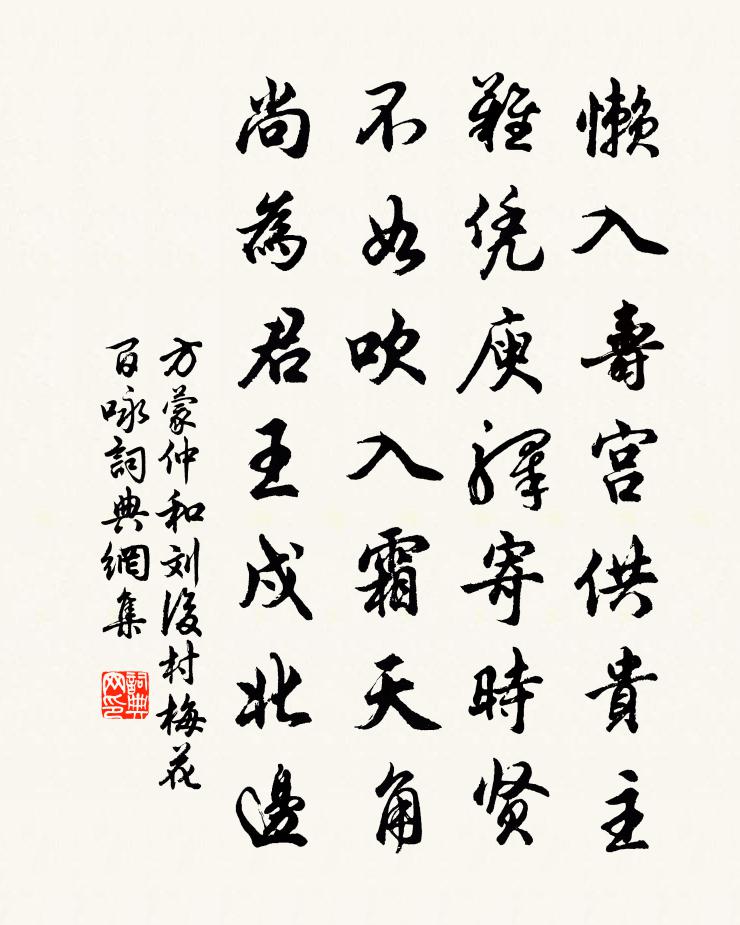 懒入壽宫供貴主
難凭庾驛寄時贤
不如吹入霜天角
尚為君王戍北邊
方蒙仲和刘後村梅花
百咏詞典網集
詞典
网印